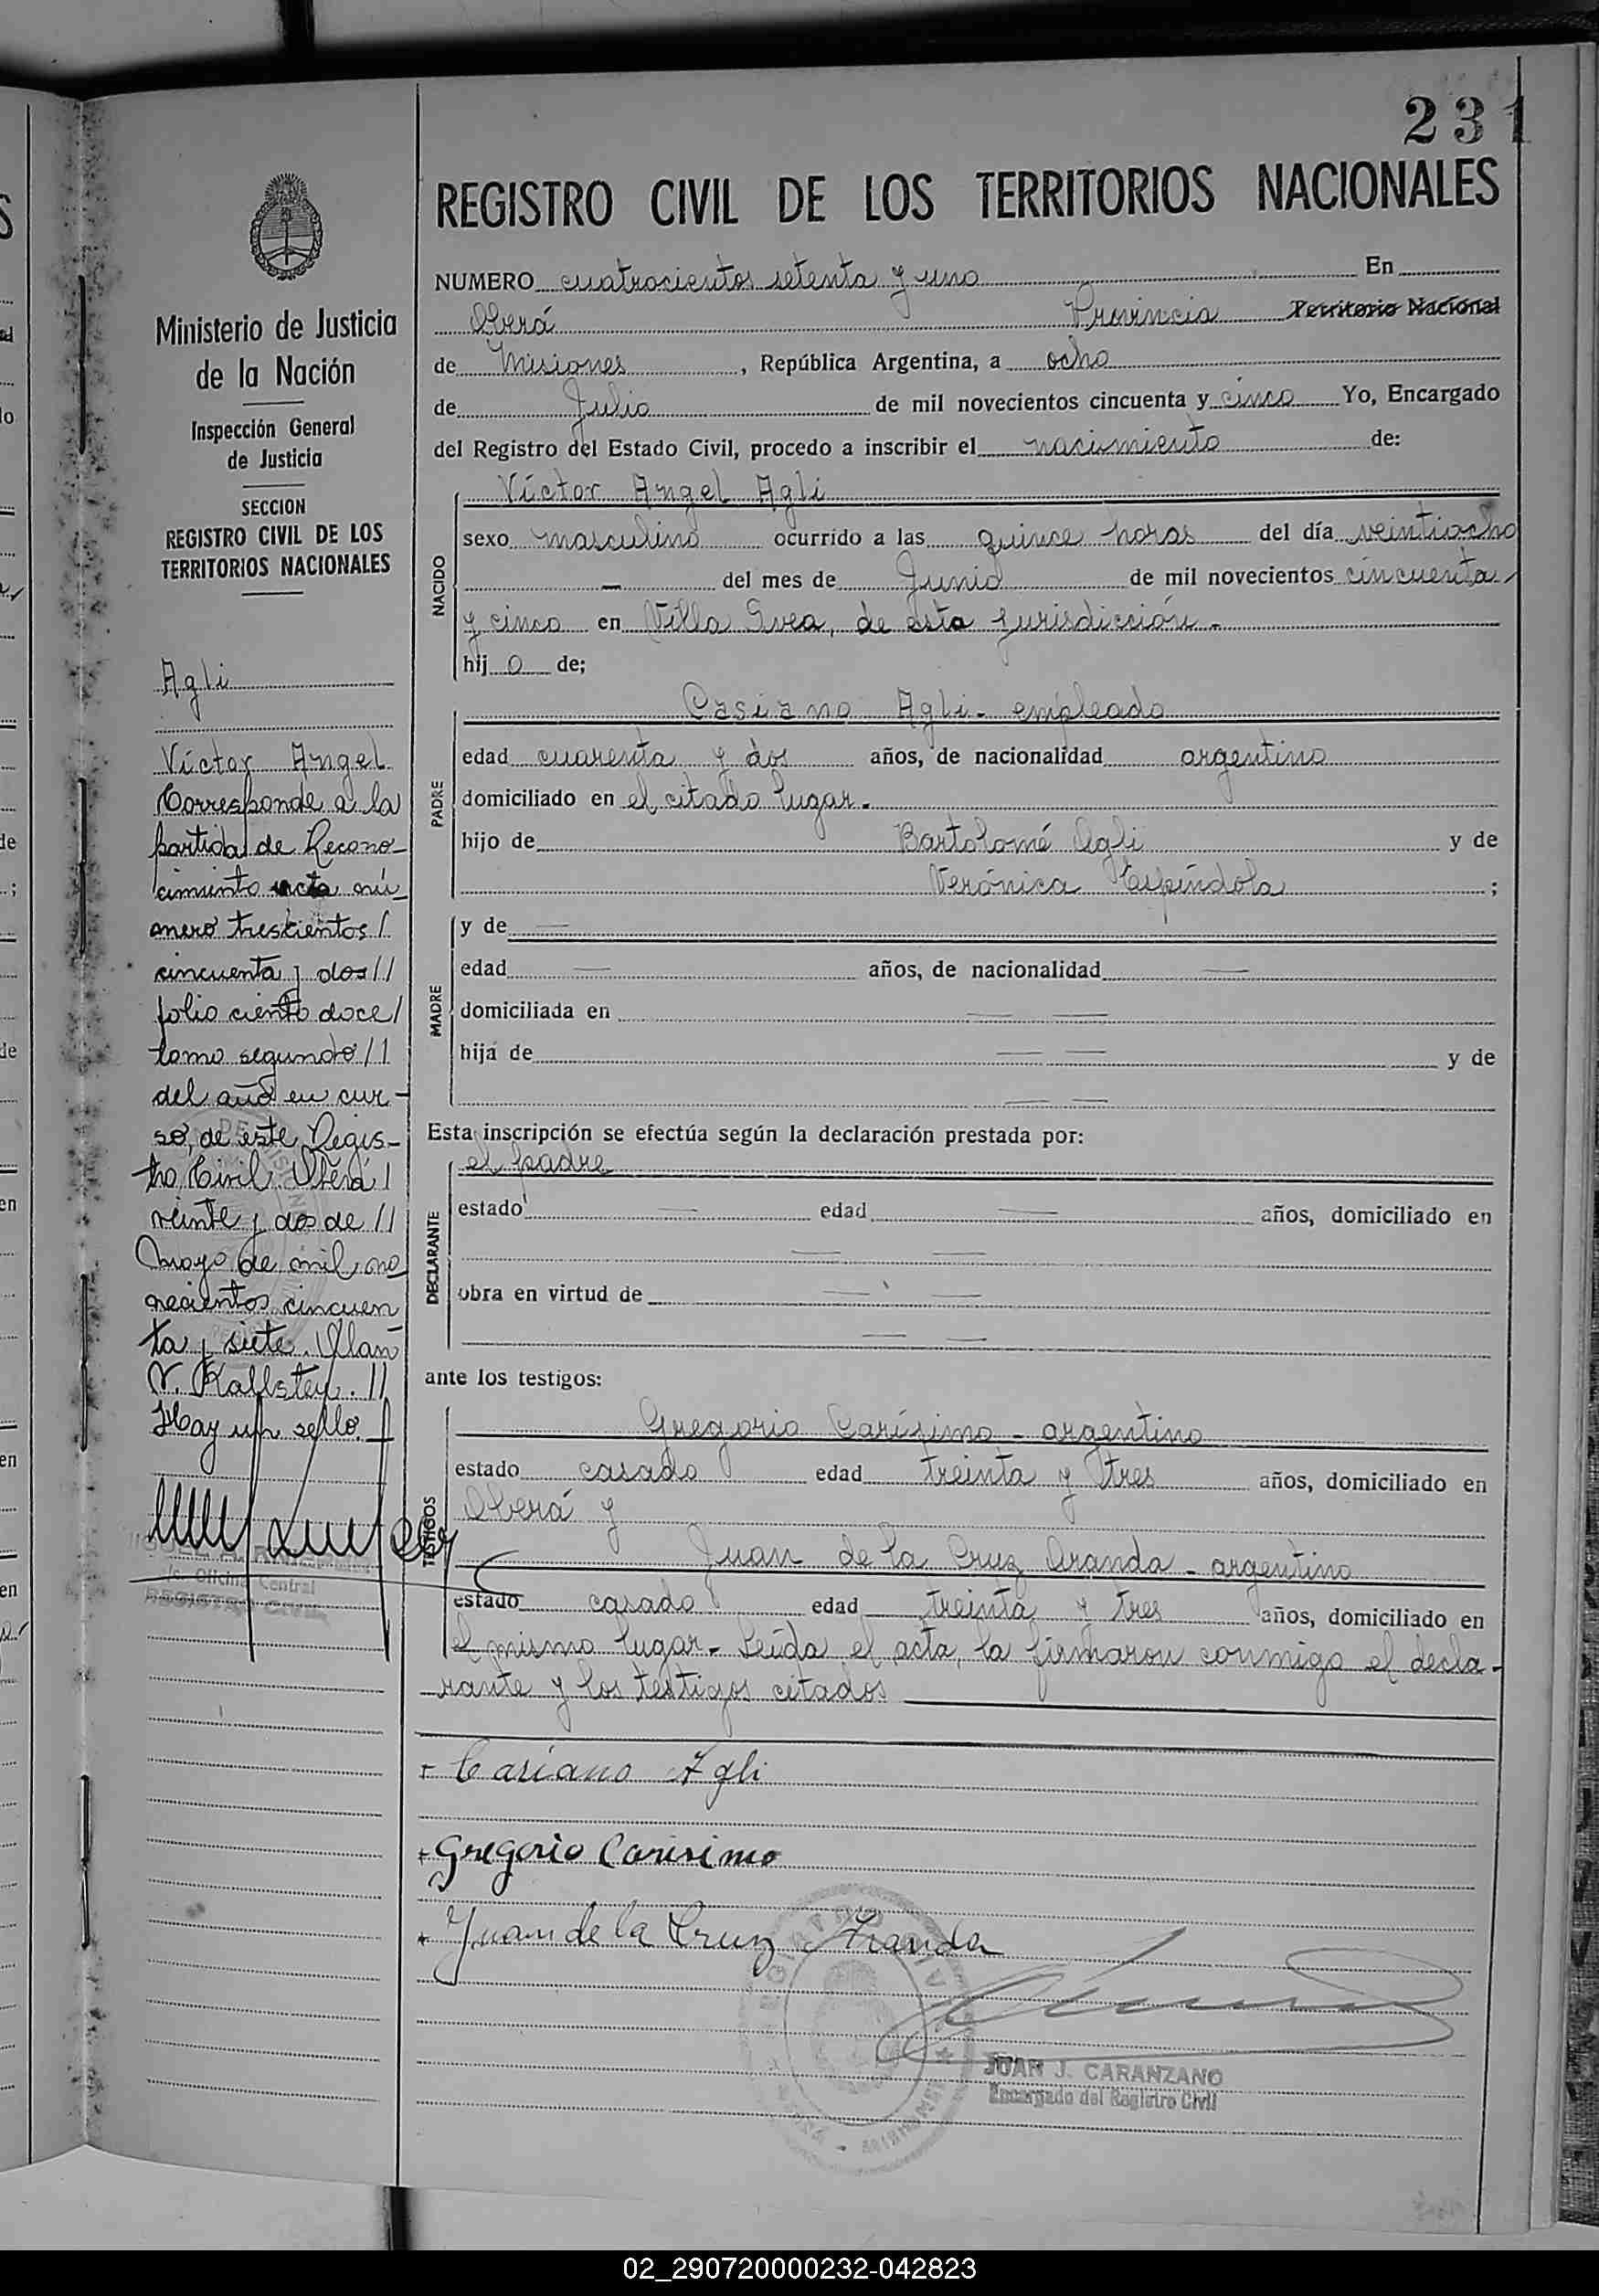 231
REGISTRO CIVIL DE LOS TERRITORIOS NACIONALES
NUMERO cuatrocientos setenta y uno En
Oberá Provincia Territorio Nacional
de Misiones, República Argentina, a ocho
de Julio de mil novecientos cincuenta y cinco Yo, Encargado
del Registro del Estado Civil, procedo a inscribir el nacimiento de:
NACIDO
Víctor Angel Agli
sexo masculino ocurrido a las quince horas del día veintiocho
— del mes de Junio de mil novecientos cincuenta
y cinco en Villa Svea, de esta jurisdicción.-
hij o de;
PADRE
Casiano Agli - empleado
edad cuarenta y dos años, de nacionalidad argentino
domiciliado en el citado lugar.
hijo de Bartolomé Agli y de
Verónica Espíndola ;
MADRE
y de —
edad — años, de nacionalidad —
domiciliada en — —
hija de — — y de
— —
Esta inscripción se efectúa según la declaración prestada por:
DECLARANTE
el padre
estado — edad — años, domiciliado en
— —
obra en virtud de — —
— —
ante los testigos:
TESTIGOS
Gregorio Carísimo - argentino
estado casado edad treinta y tres años, domiciliado en
Oberá y
Juan de la Cruz Aranda - argentino
estado casado edad treinta y tres años, domiciliado en
el mismo lugar - Leída el acta, la firmaron conmigo el decla-
rante y los testigos citados
+ Casiano Agli
+ Gregorio Carisimo
+ Juan de la Cruz Aranda
JUAN J. CARANZANO
Encargado del Registro Civil
Ministerio de Justicia
de la Nación
Inspección General
de Justicia
SECCION
REGISTRO CIVIL DE LOS
TERRITORIOS NACIONALES
Agli
Víctor Angel
Corresponde a la
partida de Recono-
cimiento acta nú-
mero trescientos /
cincuenta y dos //
folio ciento doce /
tomo segundo //
del año en cur-
so, de este Regis-
tro Civil. Oberá /
veinte y dos de //
Mayo de mil no
vecientos cincuen
ta y siete. Olan
V. Kallsten. //
Hay un sello.
Oficina Central
REGISTRO CIVIL
02_290720000232-042823